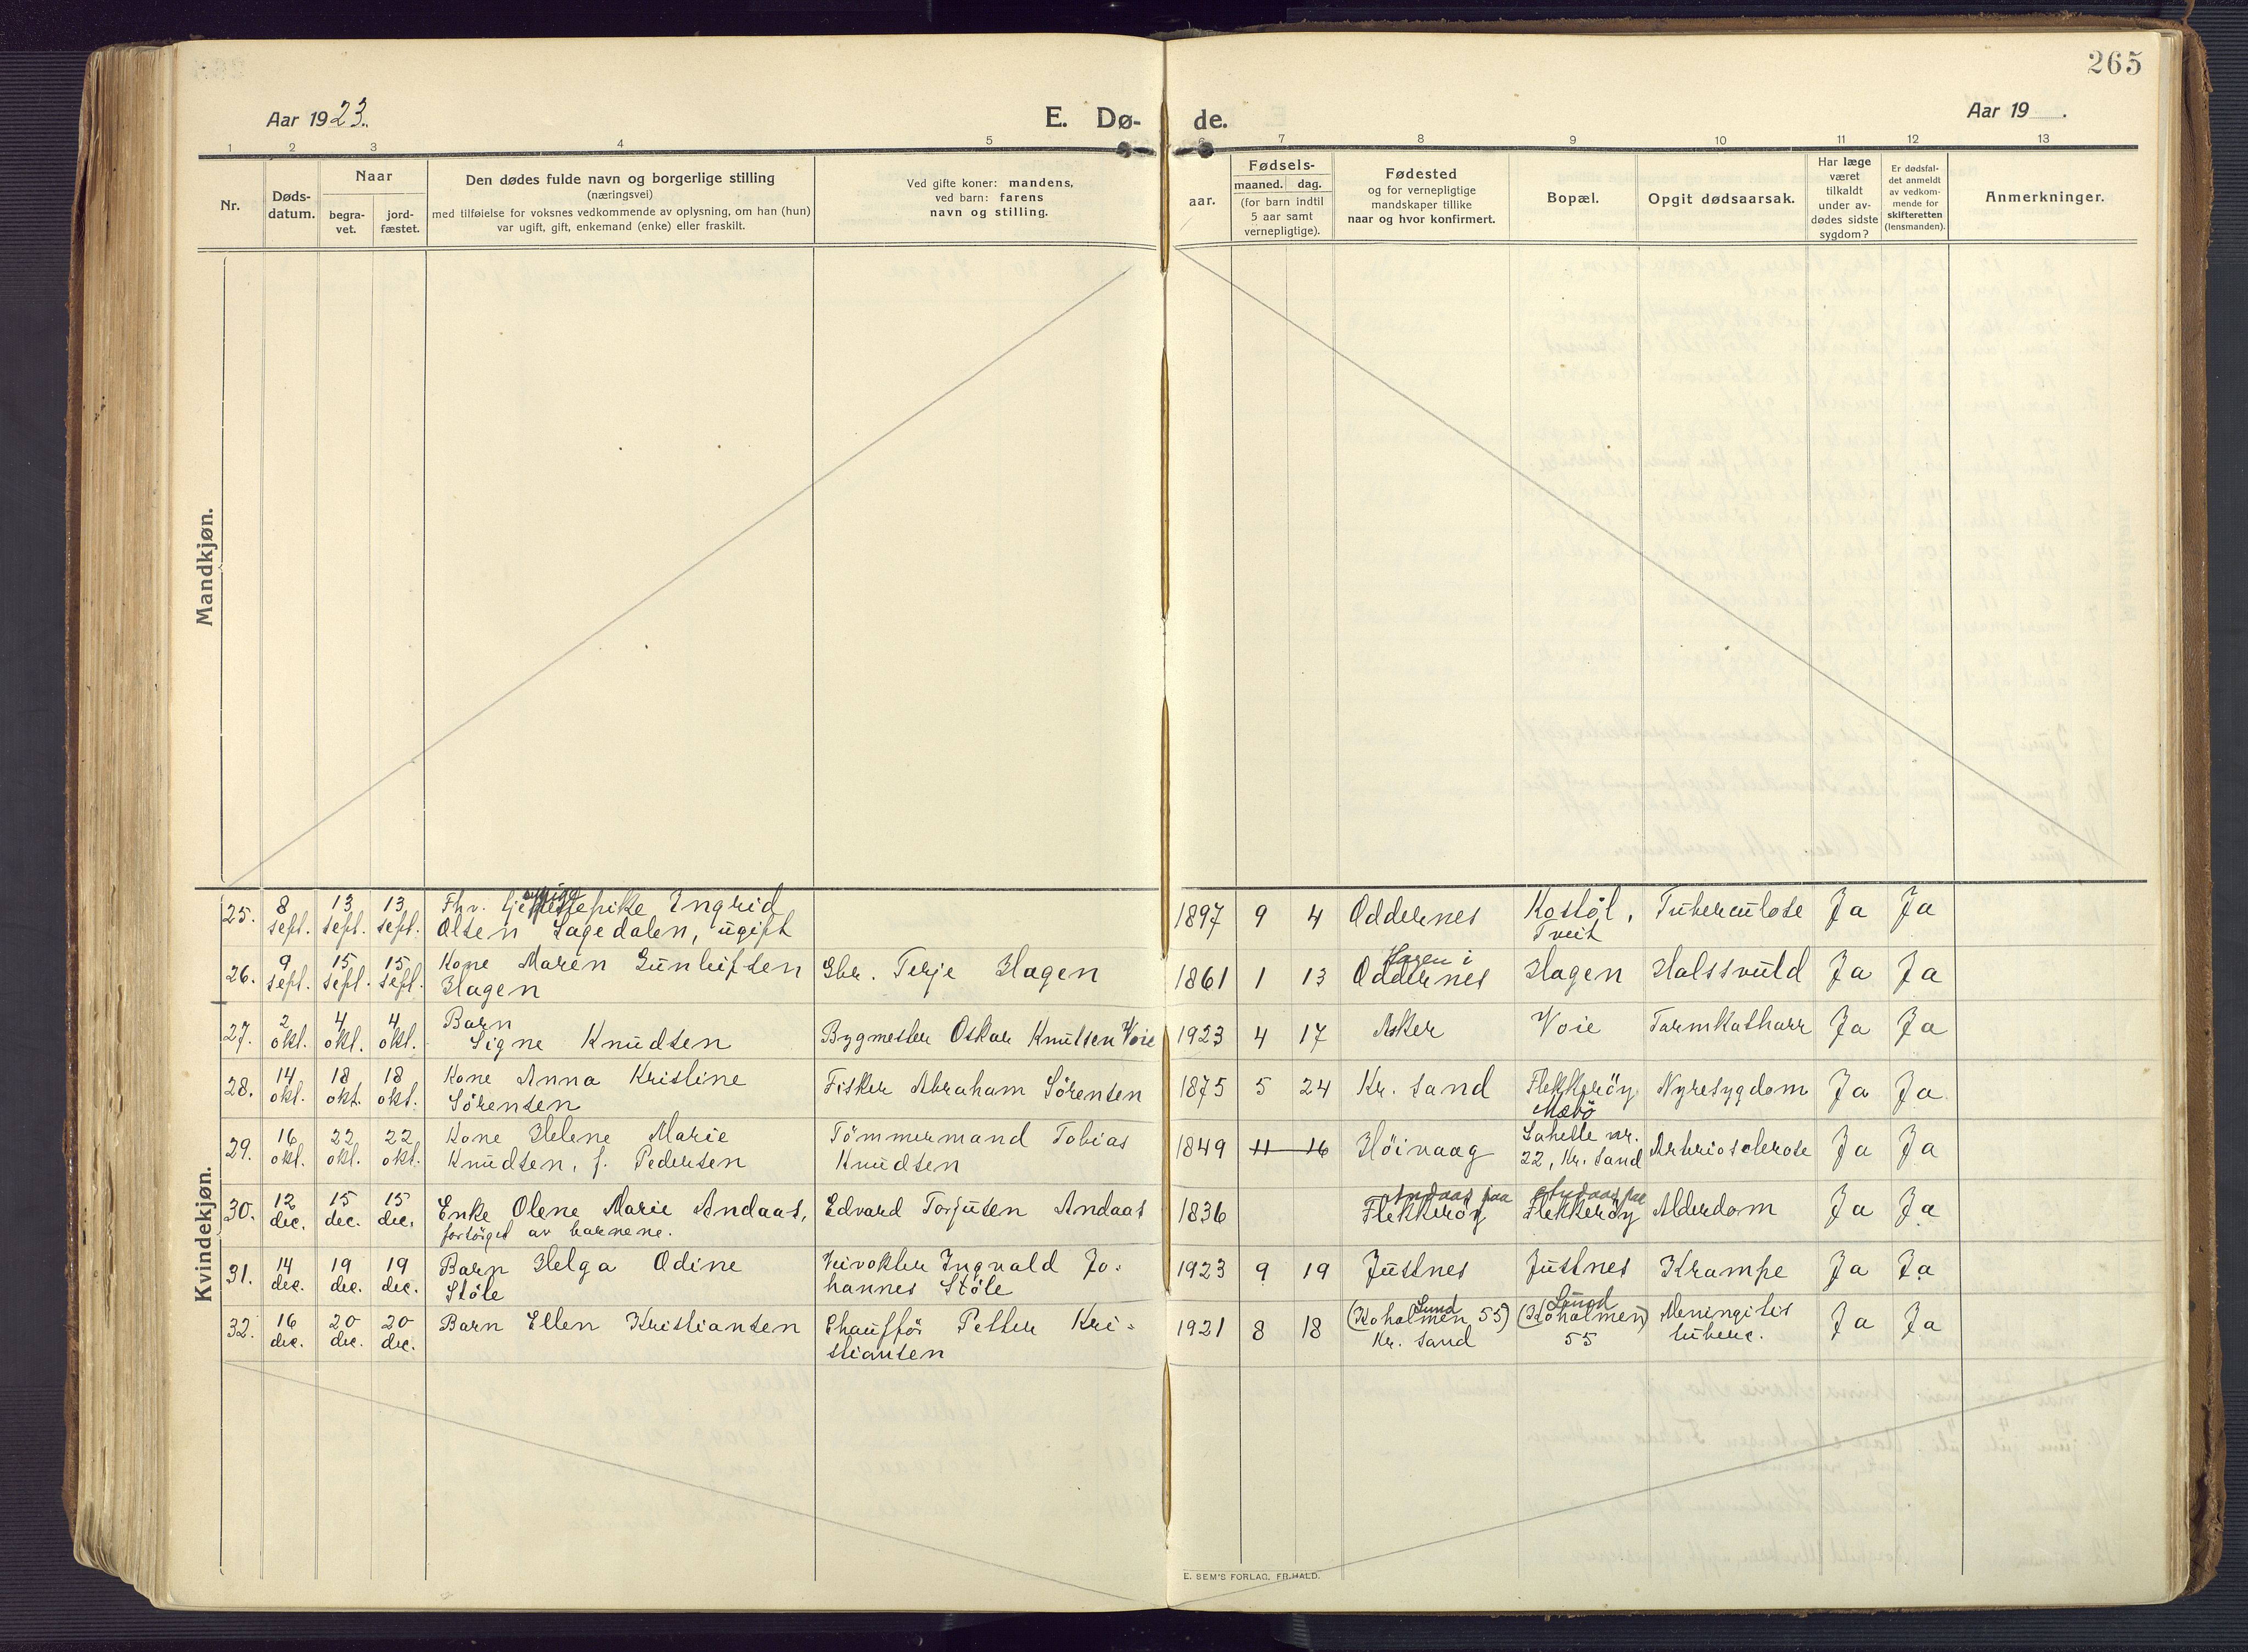 265
Aar 1923.
E. Dø-
de.
Aar 19 .
1 2 3 4 5 6 7 8 9 10 11 12 13
Nr.
Døds-
datum.
Naar
begra-
vet.
jord-
fæstet.
Den dødes fulde navn og borgerlige stilling
(næringsvei)
med tilføielse for voksnes vedkommende av oplysning, om han (hun)
var ugift, gift, enkemand (enke) eller fraskilt.
Ved gifte koner: mandens,
ved barn: farens
navn og stilling.
aar.
Fødsels-
maaned. dag.
(for barn indtil
5 aar samt
vernepligtige).
Fødested
og for vernepligtige
mandskaper tillike
naar og hvor konfirmert.
Bopæl.
Opgit dødsaarsak.
Har læge
været
tilkaldt
under av-
dødes sidste
sygdom?
Er dødsfal-
det anmeldt
av vedkom-
mende for
skifteretten
(lensmanden).
Anmerkninger.
Mandkjøn.
Kvindekjøn.
25. 8 sept. 13 sept. 13 sept. Fhv. Ingrid
Olsen Lagedalen, ugift
1897 9 4 Oddernes Kostøl, Tveit Tuberculose Ja Ja
26. 9 sept. 15 sept. 15 sept. Kone Maren Gunleifsen
Hagen
Gbr. Terje Hagen 1861 1 13 Hagen i Oddernes Hagen Halssvuld Ja Ja
27. 2 okt. 4 okt. 4 okt. Barn
Signe Knudsen
Bygmester Oskar Knutsen Voie 1923 4 17 Asker Voie Tarmkatharr Ja Ja
28. 14 okt. 18 okt. 18 okt. Kone Anna Kristine
Sörensen
Fisker Abraham Sörensen 1875 5 24 Kr. sand Flekkeröy Mæbö Nyresygdom Ja Ja
29. 16 okt. 22 okt. 22 okt. Kone Helene Marie
Knudsen, f. Pedersen
Tömmermand Tobias
Knudsen
1849 11 16 Höivaag Lahelle nr.
22, Kr. sand
Arteriosclerose Ja Ja
30. 12 dec. 15 dec. 15 dec. Enke Olene Marie Andaas,
forsörget av barnene.
Edvard Torjusen Andaas 1836 Andaas paa
Flekkeröy
Andaas paa
Flekkeröy
Alderdom Ja Ja
31. 14 dec. 19 dec. 19 dec. Barn Helga Odine
Stöle
Veivokter Ingvald Jo-
hannes Stöle
1923 9 19 Justnes Justnes Krampe Ja Ja
32. 16 dec. 20 dec. 20 dec. Barn Ellen Kristiansen
Chaufför Petter Kri-
stiansen
1921 8 18 Lund
(Koholmen 55)
Kr. sand
Lund
(Koholmen)
55
Meningitis
tuberc.
Ja Ja
E. SEM'S FORLAG, FR.HALD.